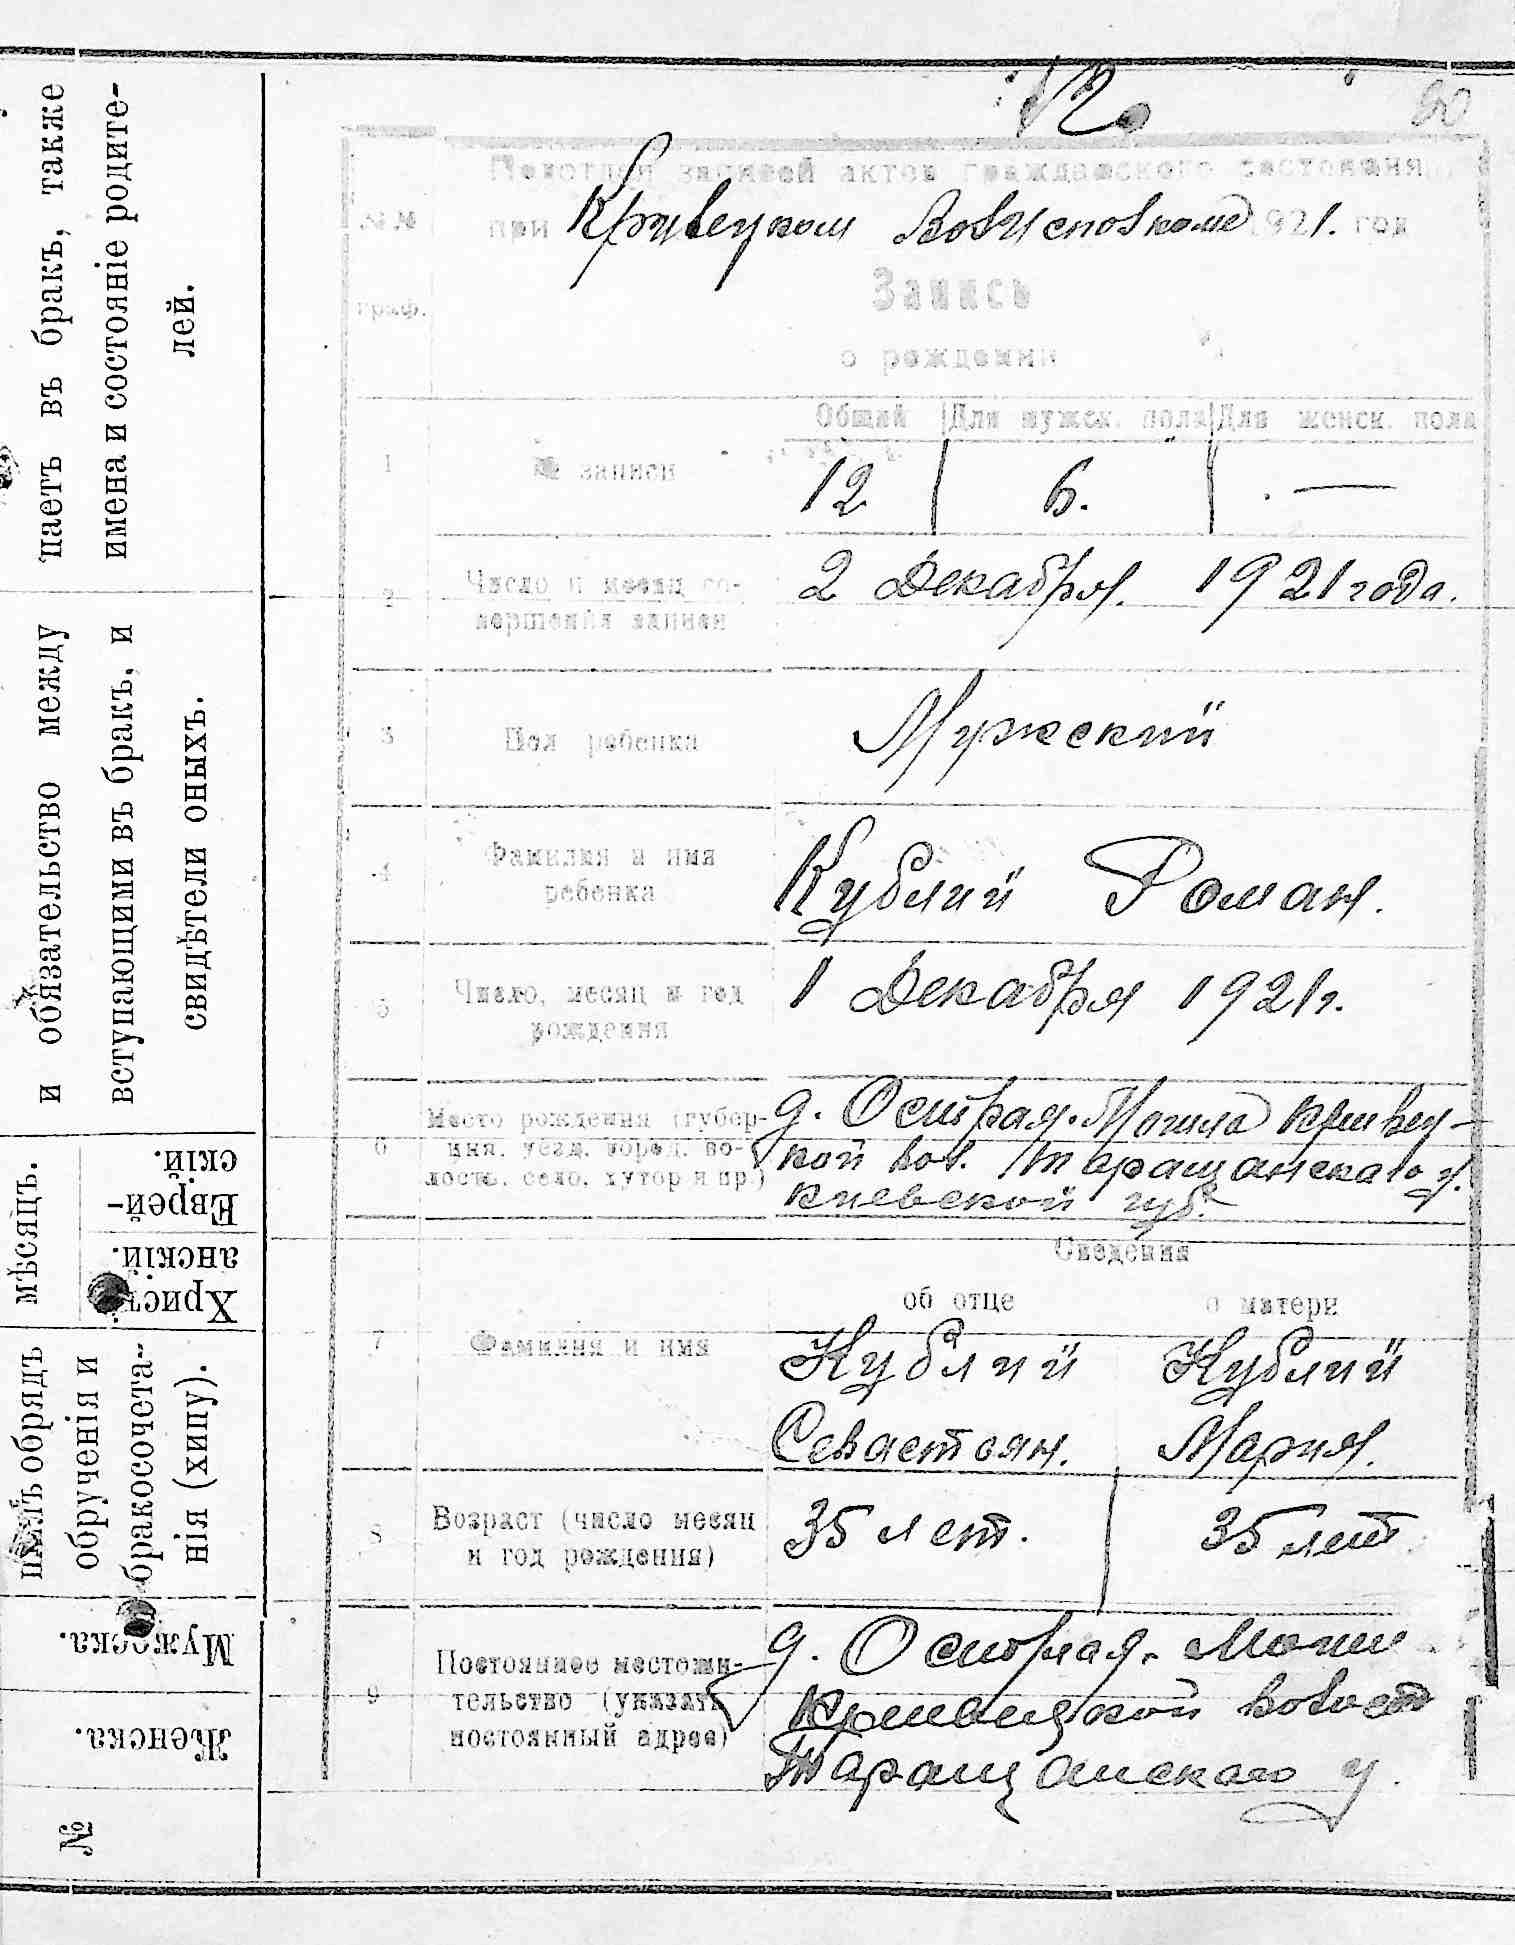 12.
90
записей актов гражданского состояния
№№ при Кривецком Волисполкоме 1921. год
граф. Запись
о рождении
Общий Для мужск. пола Для женск. пола
1 № записи 12 6. —
2 Число и месяц со- 2 Декабря. 1921 года.
вершения записи
3 Пол ребенка Мужский
4 Фамилия и имя Кублий Роман.
ребенка
5 Число, месяц и год 1 Декабря 1921 г.
рождения
Место рождения (губер- д. Острая-Могила Кривец-
6 ния, уезд, город, во- кой вол. Таращанскаго у.
лость, село, хутор и пр.) Киевской губ.
Сведения
об отце о матери
7 Фамилия и имя Кублий Кублий
Севастьян. Мария.
8 Возраст (число месяц 35 лет. 35 лет
и год рождения)
Постоянное местожи- д. Острая-Моги
9 тельство (указать Кривецкой волост
постоянный адрес) Таращанскаго у.
паетъ въ бракъ, также
имена и состояніе родите-
лей.
и обязательство между
вступающими въ бракъ, и
свидѣтели оныхъ.
мѣсяцъ.
Еврей-
скій.
Христі
анскій.
обрядъ
обрученія и
бракосочета-
нія (хипу).
Мужеска.
Женска.
№